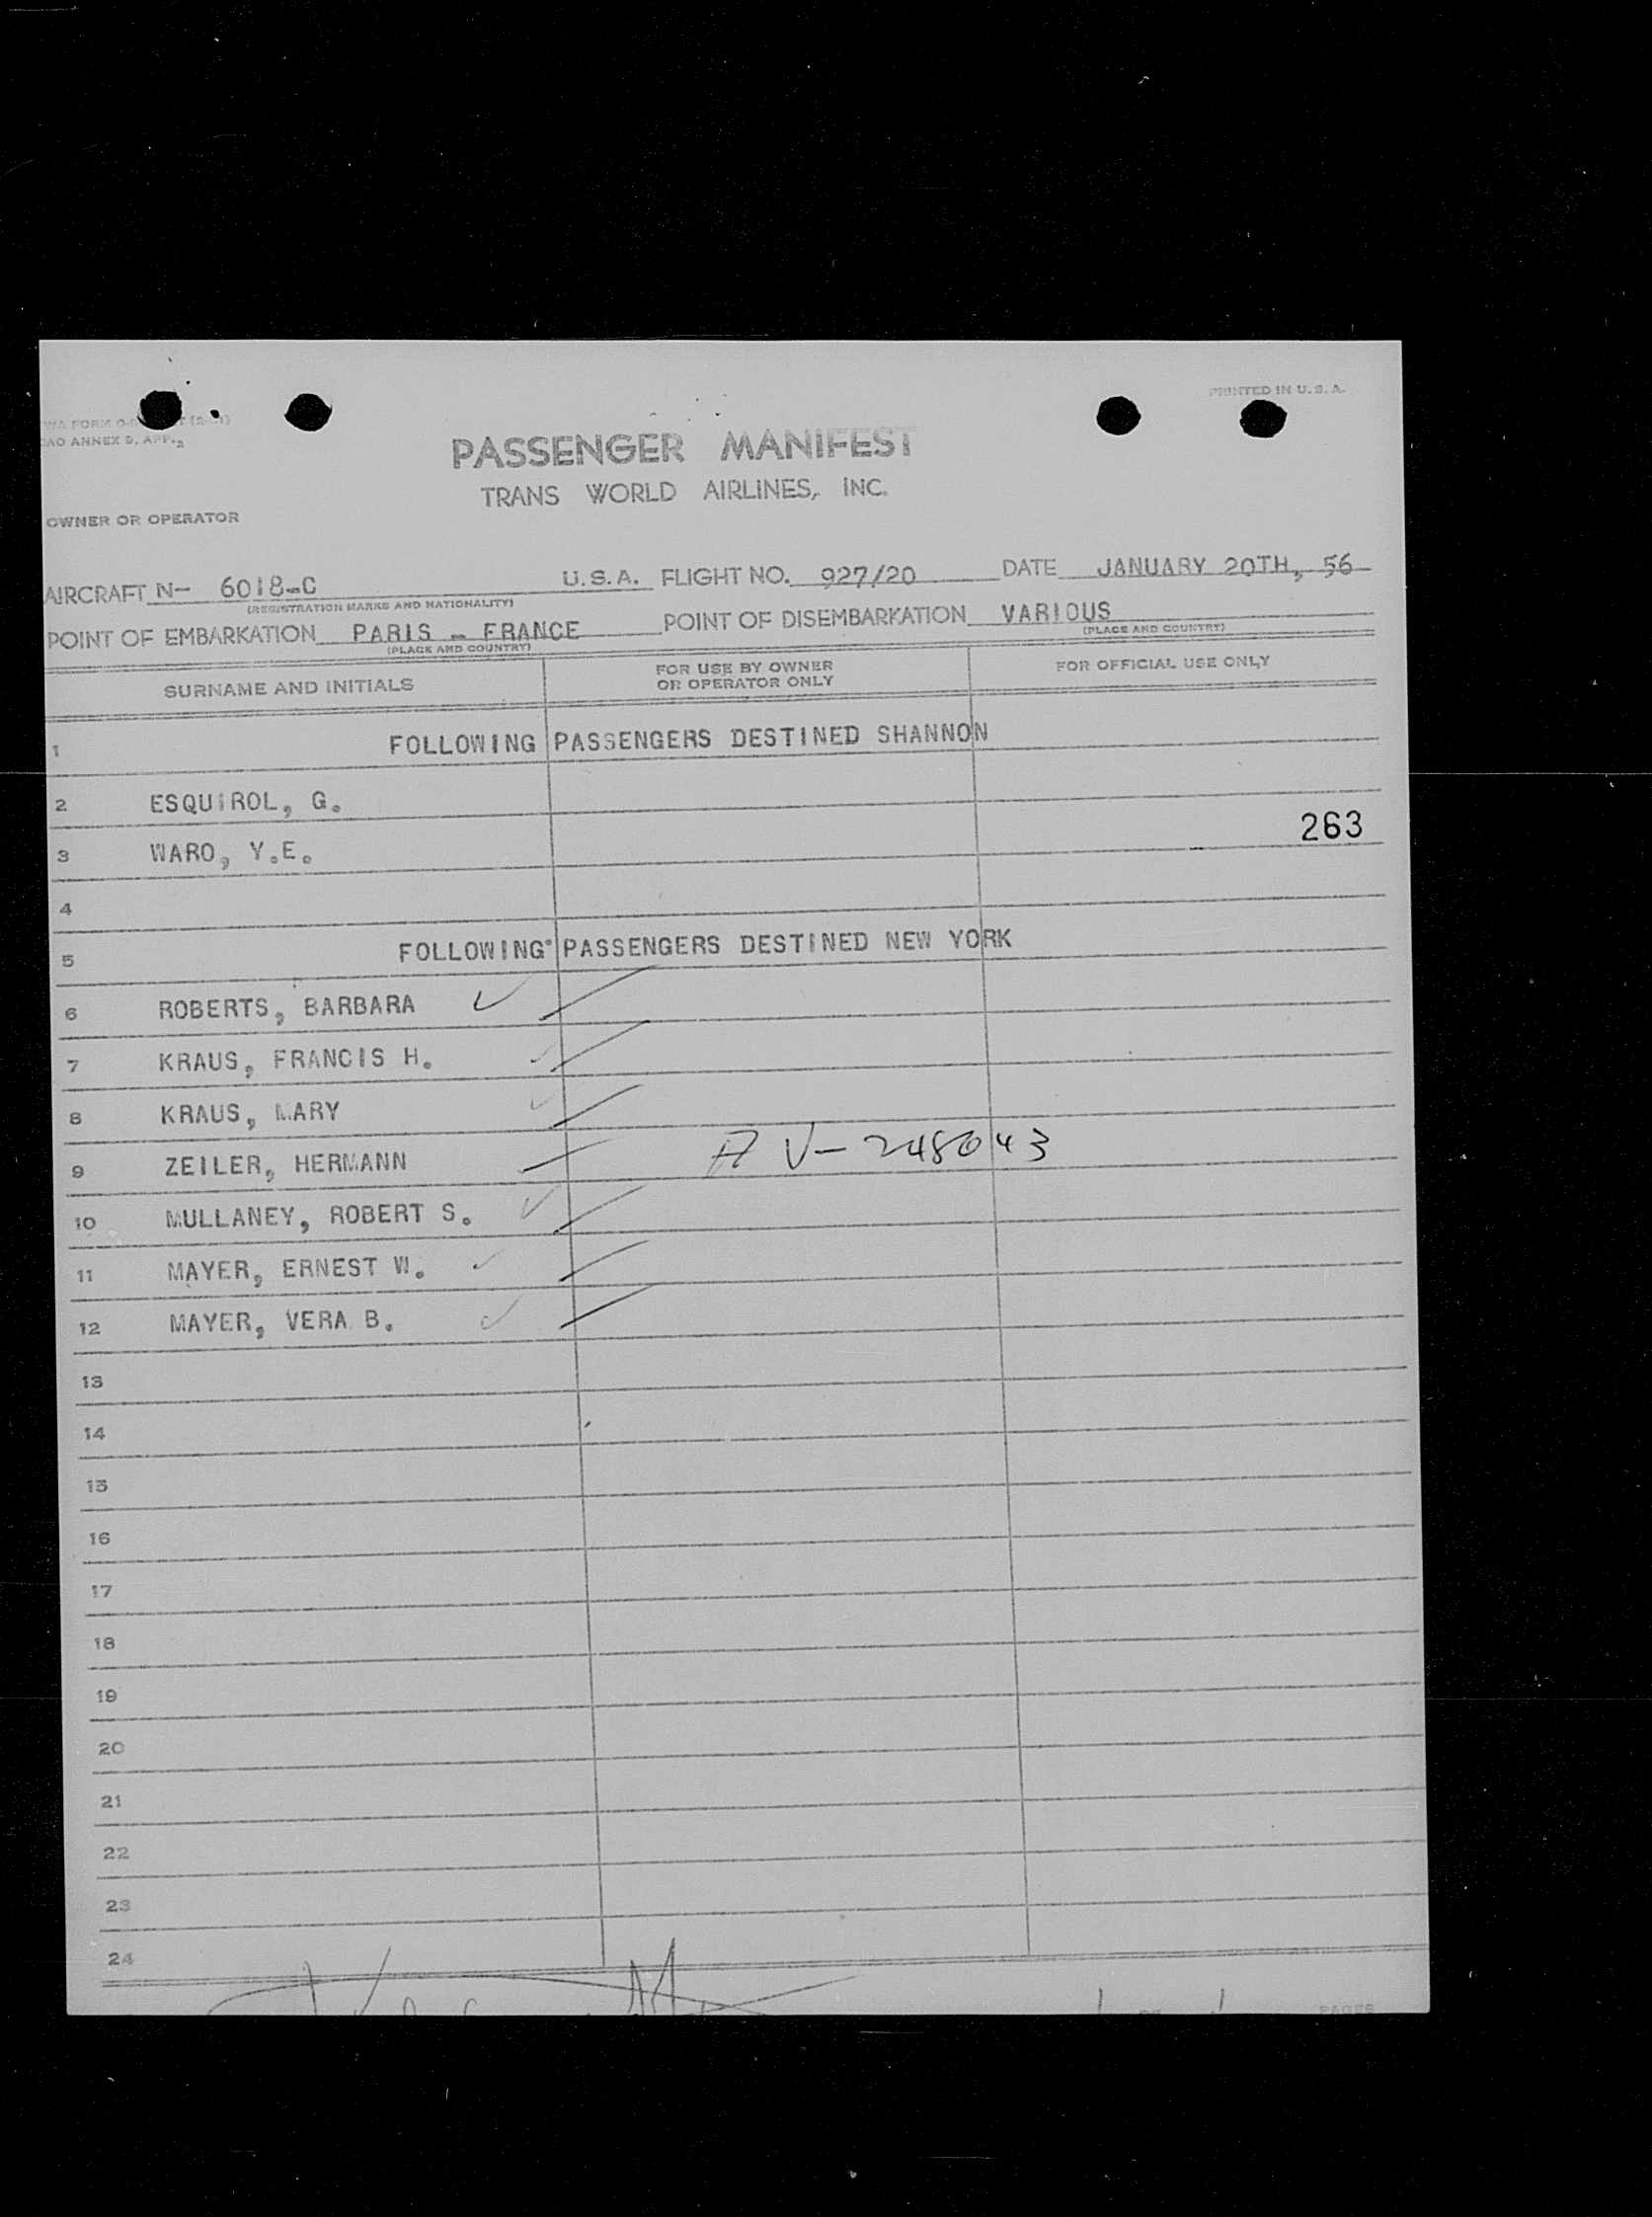 PRINTED IN U.S.A.
ANNEX 9, APP. 2
PASSENGER MANIFEST
TRANS WORLD AIRLINES, INC.
OWNER OR OPERATOR
AIRCRAFT N- 6018-C U.S.A. FLIGHT NO. 927/20 DATE JANUARY 20TH, 56
(REGISTRATION MARKS AND NATIONALITY)
POINT OF EMBARKATION PARIS - FRANCE POINT OF DISEMBARKATION VARIOUS
(PLACE AND COUNTRY) (PLACE AND COUNTRY)
SURNAME AND INITIALS FOR USE BY OWNER OR OPERATOR ONLY FOR OFFICIAL USE ONLY
1 FOLLOWING PASSENGERS DESTINED SHANNON
2 ESQUIROL, G.
263
3 WARO, Y.E.
4
5 FOLLOWING PASSENGERS DESTINED NEW YORK
6 ROBERTS, BARBARA
7 KRAUS, FRANCIS H.
8 KRAUS, MARY
9 ZEILER, HERMANN A V-248043
10 MULLANEY, ROBERT S.
11 MAYER, ERNEST W.
12 MAYER, VERA B.
13
14
15
16
17
18
19
20
21
22
23
24
PAGES